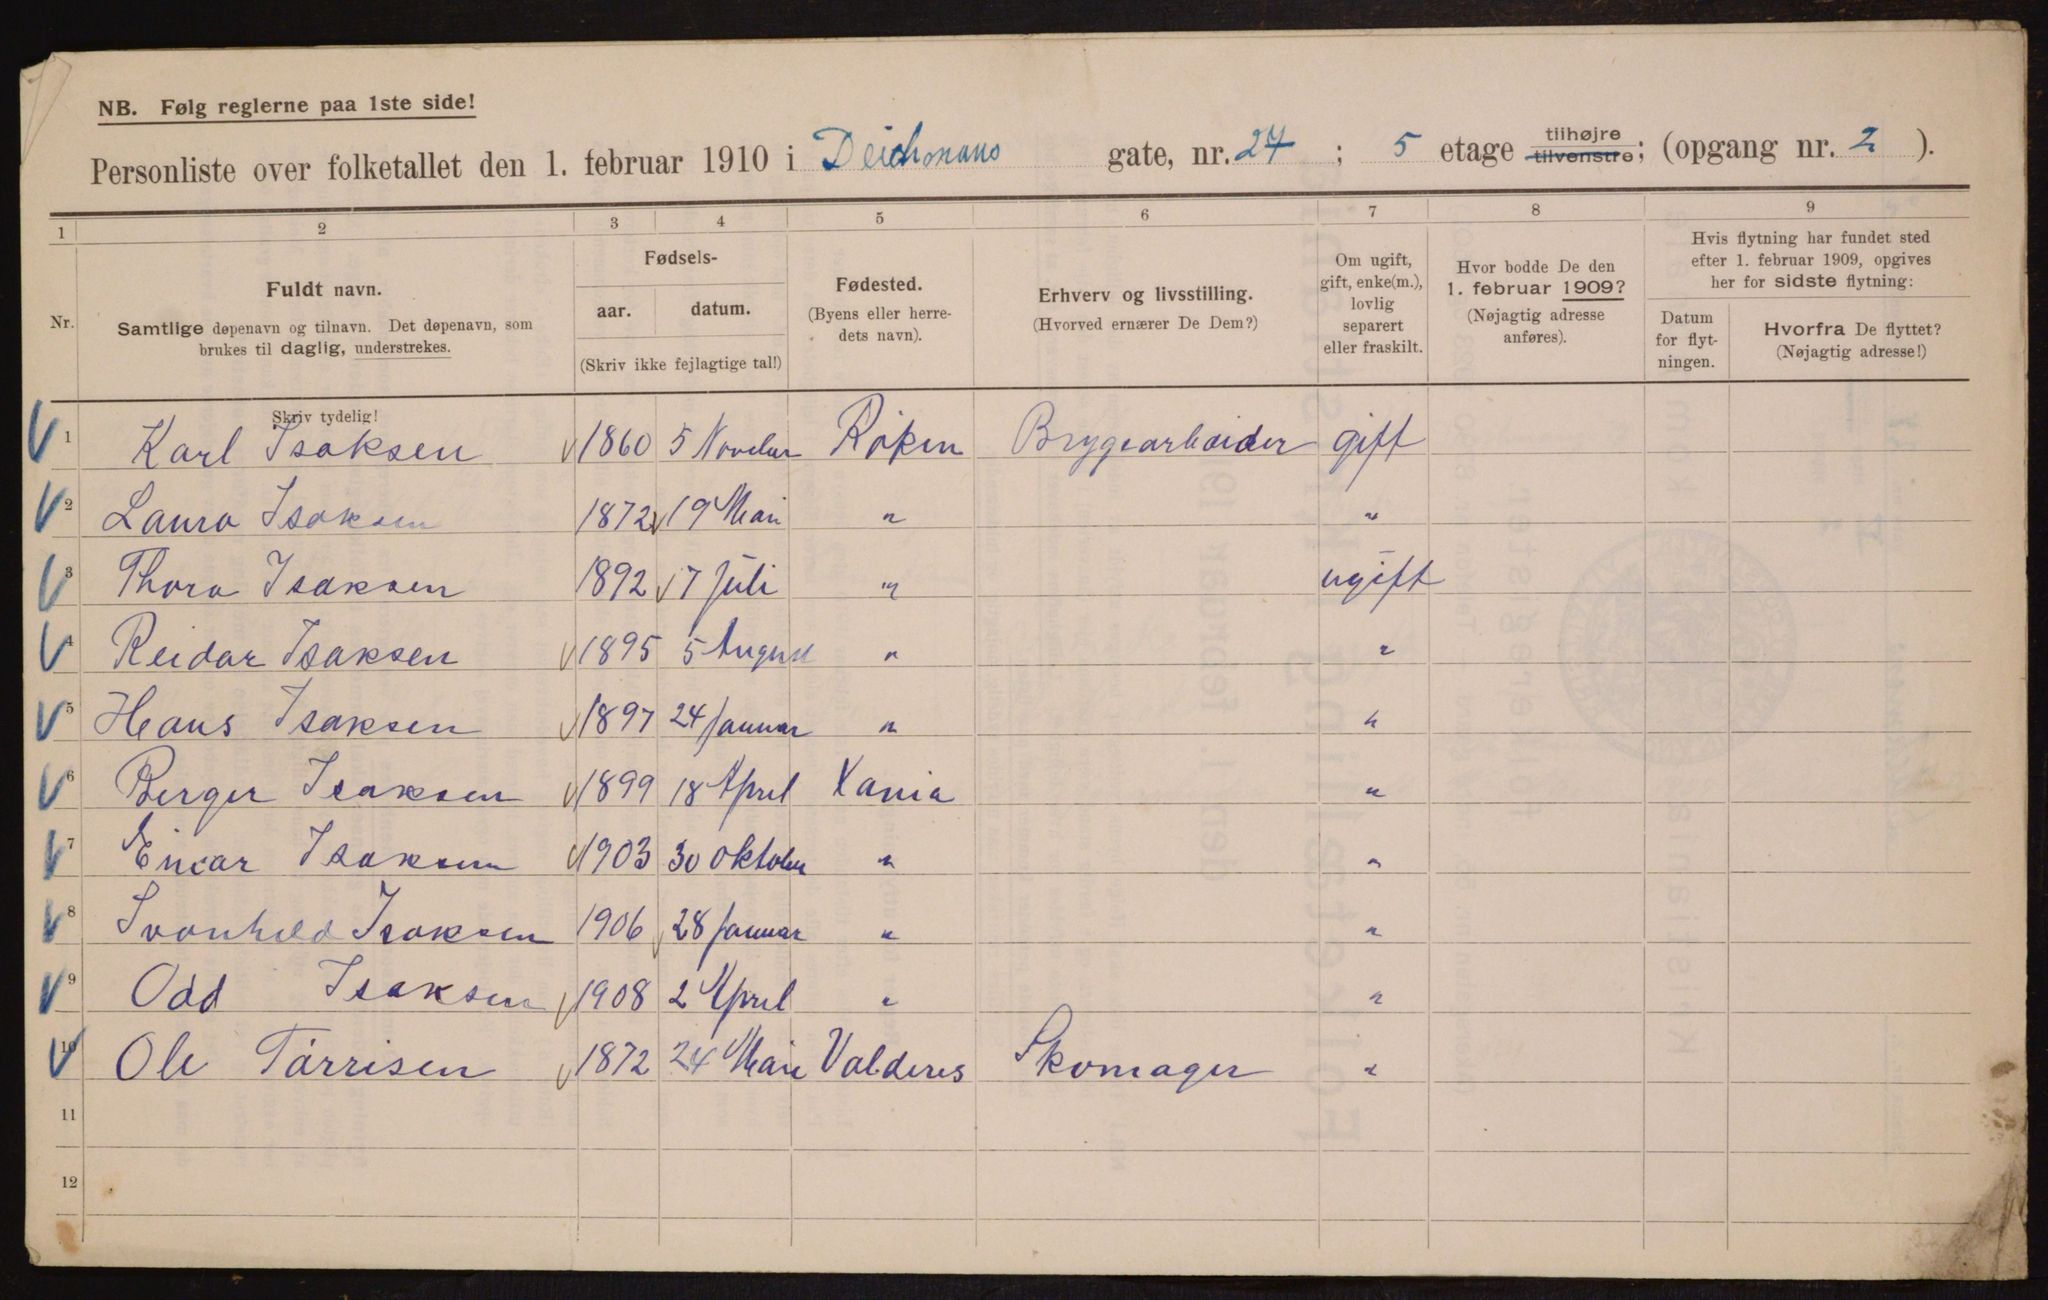 NB. Følg reglerne paa 1ste side!
Personliste over folketallet den 1. februar 1910 i Deichmans gate, nr. 27 ; 5 etage tilhøjre tilvenstre; (opgang nr. 2 ).
1 2 3 4 5 6 7 8 9
Nr.
Fuldt navn.
Samtlige døpenavn og tilnavn. Det døpenavn, som
brukes til daglig, understrekes.
Fødsels-
aar. datum.
(Skriv ikke fejlagtige tal!)
Fødested.
(Byens eller herre-
dets navn).
Erhverv og livsstilling.
(Hvorved ernærer De Dem?)
Om ugift,
gift, enke(m.),
lovlig
separert
eller fraskilt.
Hvor bodde De den
1. februar 1909?
(Nøjagtig adresse
anføres).
Hvis flytning har fundet sted
efter 1. februar 1909, opgives
her for sidste flytning:
Datum
for flyt-
ningen.
Hvorfra De flyttet?
(Nøjagtig adresse!)
Skriv tydelig!
1 Karl Isaksen 1860 5 Novebr Røken Brygearbeider gift
2 Laura Isaksen 1872 19 Mai " "
3 Thora Isaksen 1892 17 Juli " ugift
4 Reidar Isaksen 1895 5 August " "
5 Hans Isaksen 1897 24 Januar " "
6 Berger Isaksen 1899 18 April Xania "
7 Einar Isaksen 1903 30 Oktober " "
8 Svanhild Isaksen 1906 28 Januar " "
9 Odd Isaksen 1908 2 April " "
10 Ole Tørrisen 1872 24 Mai Valdres Skomager "
11
12